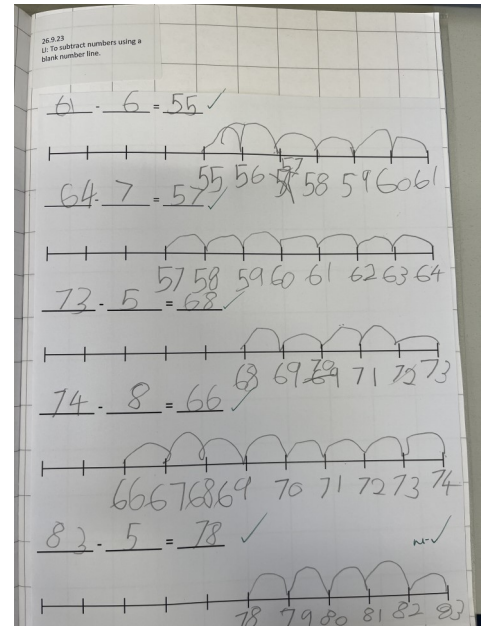 26.9.23
LI: To subtract numbers using a
blank number line.
61 - 6 = 55 ✓
55 56 57 58 59 60 61
64 - 7 = 57 ✓
57 58 59 60 61 62 63 64
73 - 5 = 68 ✓
68 69 70 71 72 73
74 - 8 = 66 ✓
66 67 68 69 70 71 72 73 74
83 - 5 = 78 ✓
78 79 80 81 82 83